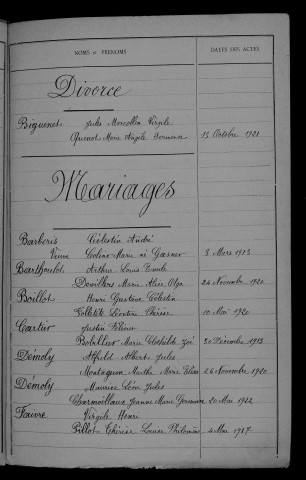 NOMS et PRÉNOMS
DATES DES ACTES
Divorce
Biguenet Jules Marcellin Virgile
Quenot Marie Angèle 15 Octobre 1921
Mariages
Barberis Célestin André
Veuve Marie né Gasner 3 Mars 1923
Barthoulot Arthur Louis Emile
Devillers Marie Alice Olga 24 Novembre 1920
Boillot Henri Gustave Célestin
Folletête Léontine Thérèse 10 Mai 1920
Cartier Justin
Bobillier Marie Clothilde Zoé 30 Décembre 1913
Démoly Alfred Albert Jules
Montagnon Marthe Marie 26 Novembre 1920
Démoly Maurice Léon Jules
Charmoillaux Jeanne Marie Germaine 20 Mai 1922
Faivre Virgile Henri
Pillot Thérèse Louise Philomène 4 Mai 1917